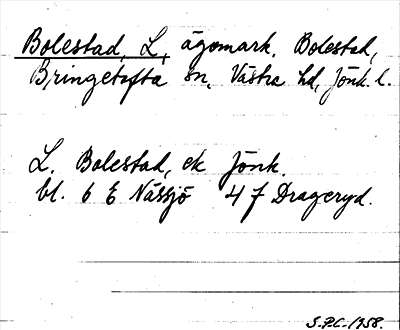 Bolestad, L, ägomark. Bolestad,
Bringetofta sn, Västra hd, Jönk. l.
L. Bolestad, ek Jönk.
bl. 6 E Nässjö 4 f Drageryd.
S.P.C. 1958.